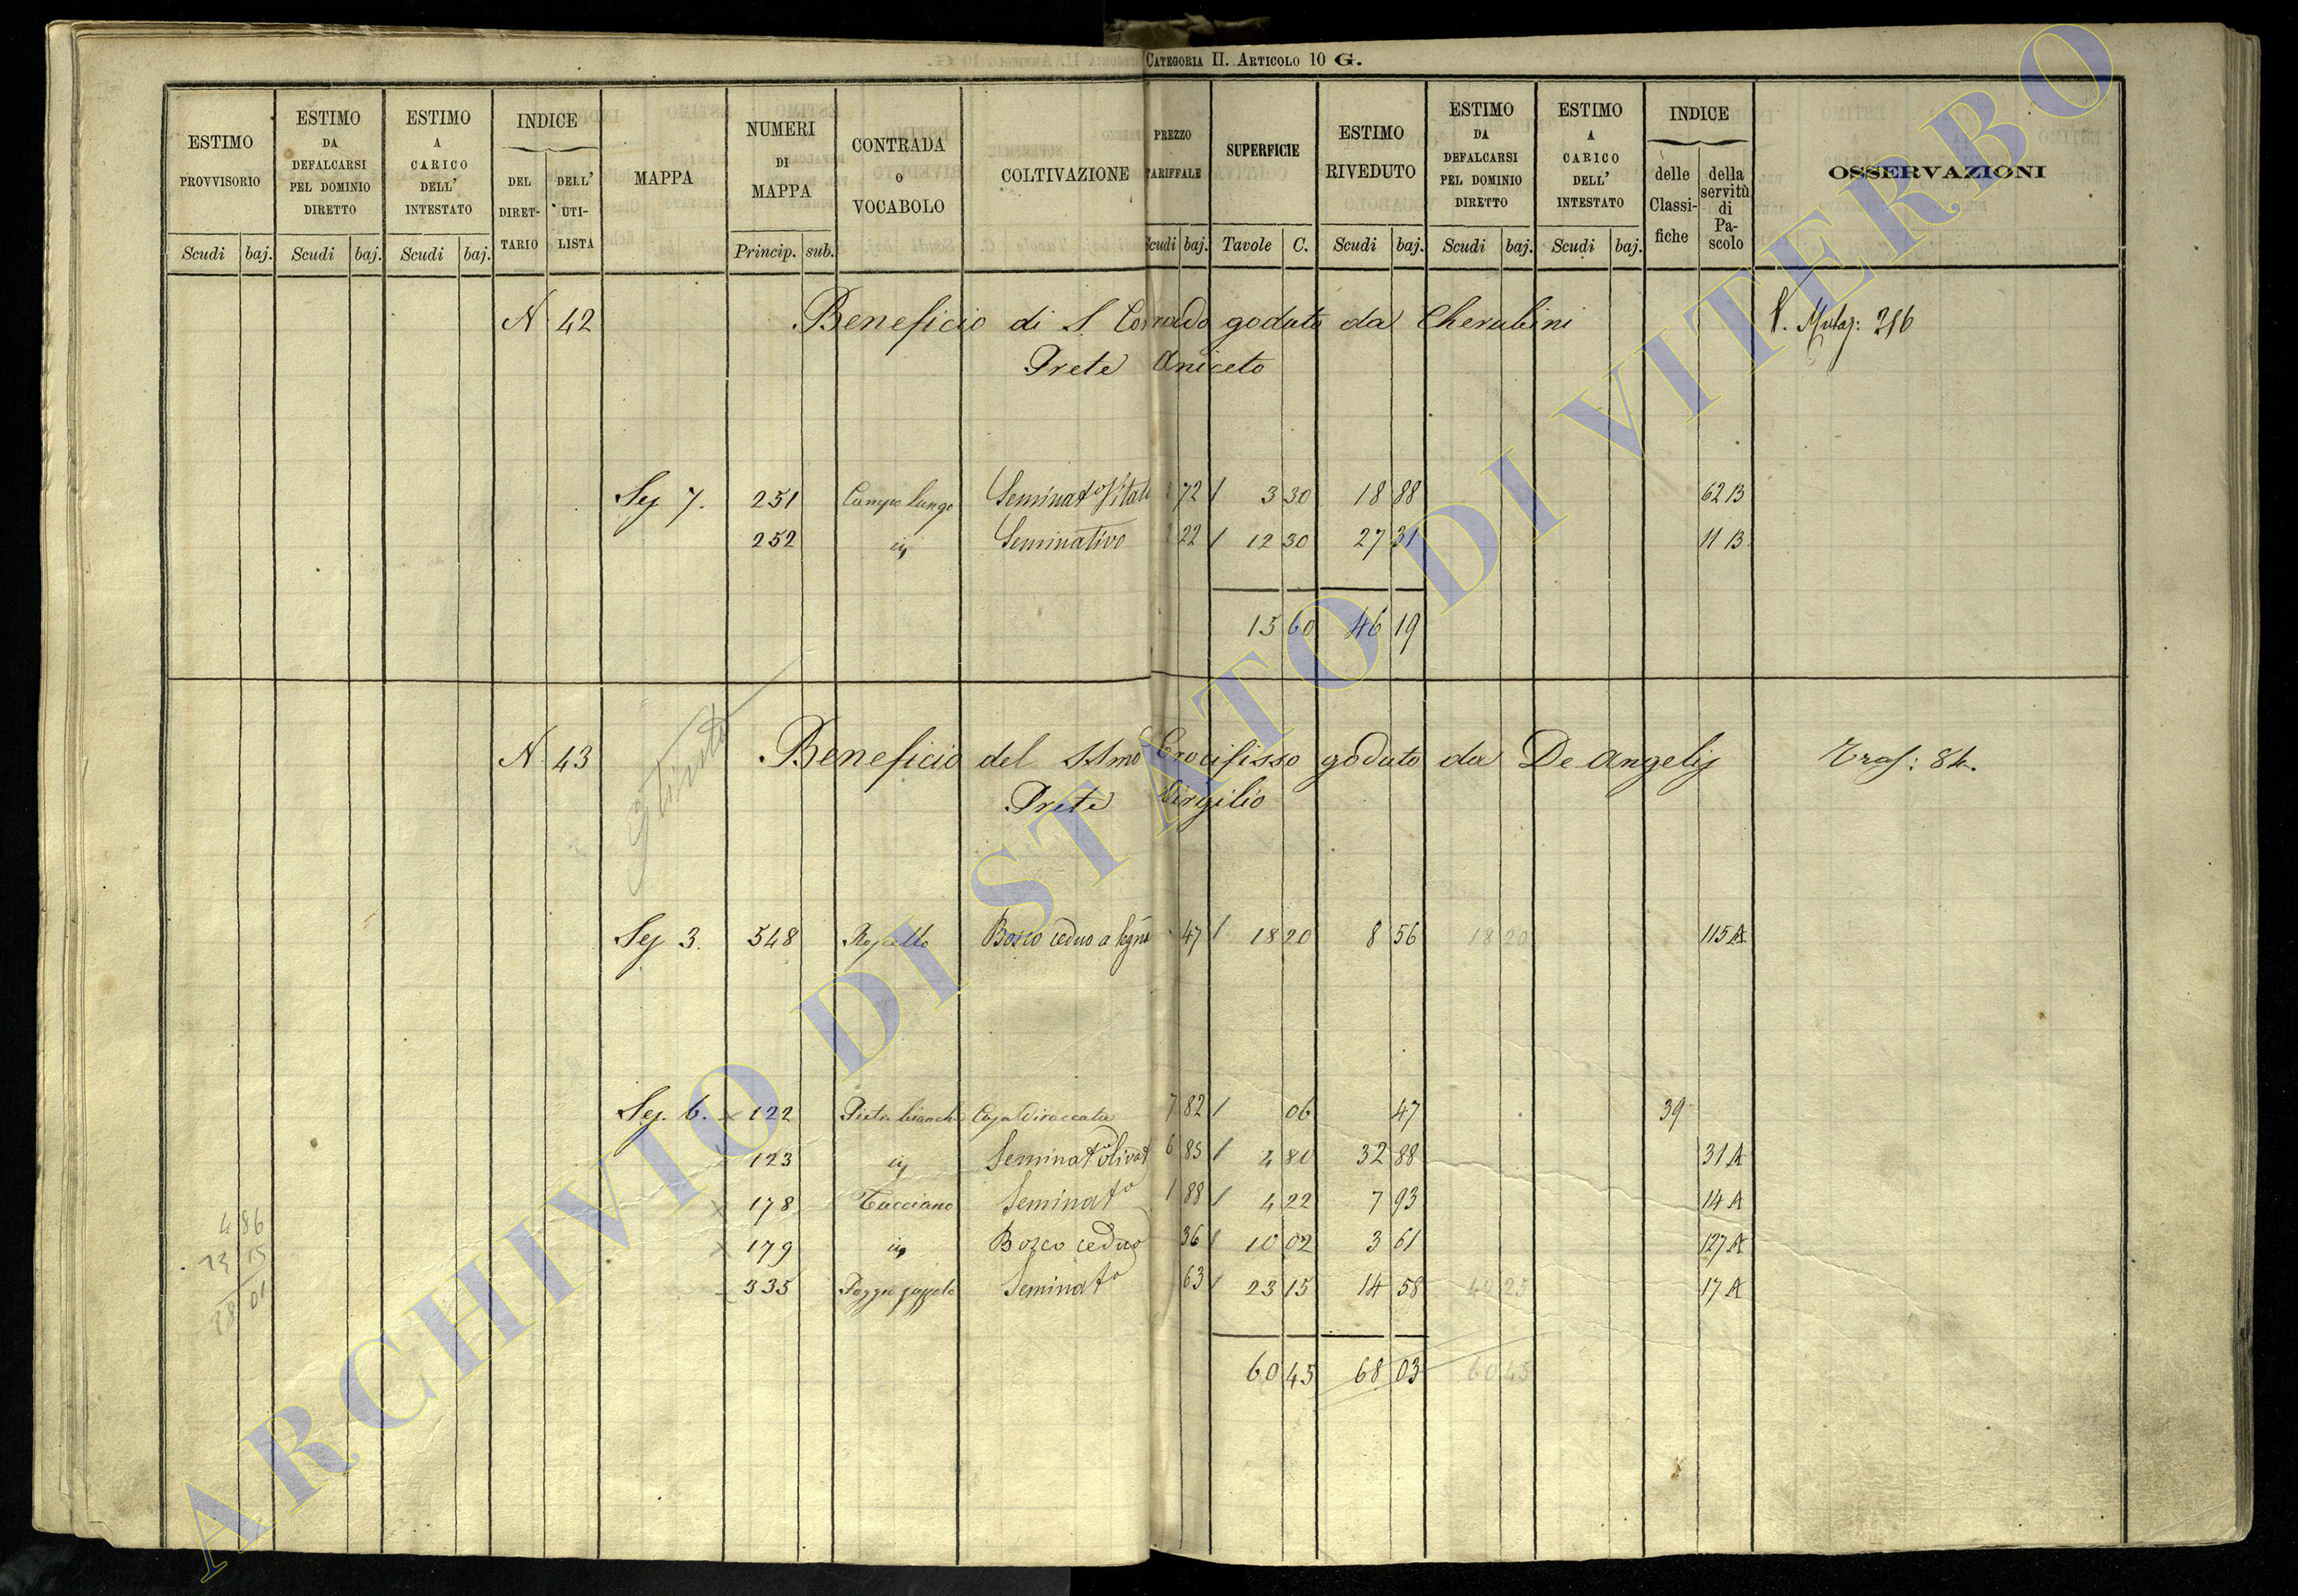 CATEGORIA II. ARTICOLO 10 G.
ESTIMO PROVVISORIO Scudi baj.
ESTIMO DA DEFALCARSI PEL DOMINIO DIRETTO Scudi baj.
ESTIMO A CARICO DELL' INTESTATO Scudi baj.
INDICE DEL DIRET- TARIO DELL' UTI- LISTA
MAPPA
NUMERI DI MAPPA Princip. sub.
CONTRADA O VOCABOLO
COLTIVAZIONE
PREZZO TARIFFALE Scudi baj.
SUPERFICIE Tavole C.
ESTIMO RIVEDUTO Scudi baj.
ESTIMO DA DEFALCARSI PEL DOMINIO DIRETTO Scudi baj.
ESTIMO A CARICO DELL' INTESTATO Scudi baj.
INDICE delle Classi- fiche della servitù di Pa- scolo
OSSERVAZIONI
N. 42 Beneficio di S Corrado goduto da Cherubini V. Mutaz: 216
Prete Aniceto
Sez 7. 251 Campo Lungo Seminat° Vitat 72 / 3 30 18 88 62 B
252 Seminativo 2 22 / 12 30 27 31 11 B
15 60 46 19
N. 43 Beneficio del SSmo Crocifisso goduto da De Angelis Tras: 84.
Prete Virgilio
Sez 3. 548 Bosco ceduo a legna 47 / 18 20 8 56 18 20 115 A
Sez. 6. 122 Casa Diroccata 7 82 / 06 47 39
123 Seminat° Olivat 6 85 / 4 80 32 88 31 A
178 Tucciano Seminat° 1 88 / 4 22 7 93 14 A
179 Bosco ceduo 36 / 10 02 3 61 127 A
335 Seminat° 63 / 23 15 14 58 40 25 17 A
60 45 68 03 60 45
4 86
23 15
28 01
ARCHIVIO DI STATO DI VITERBO